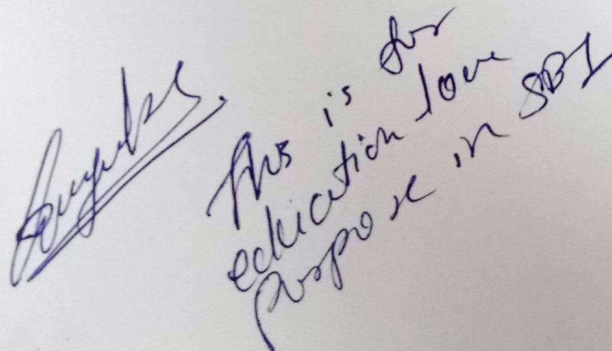 This is for
education loan
purpose in SBI